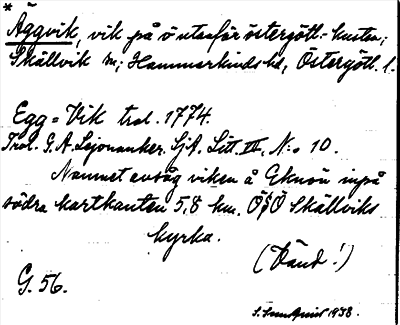 *
Äggvik, vik på ö utanför östergötl.-kusten;
Skällvik sn; Hammarkinds hd, Östergötl. l.
Egg=Vik trol. 1774.
Trol. G. A. Lejonanker. SjA. Litt. III, N:o 10.
Namnet avsåg viken å Eknön inpå
södra kartkanten 5,8 km. ÖSÖ Skällviks
kyrka.
(Vänd!)
G. 56.
1938.